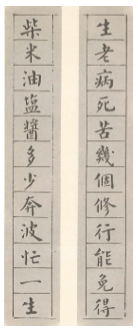 生老病死苦幾個修行能免得
柴米油盐醬多少奔波忙一生